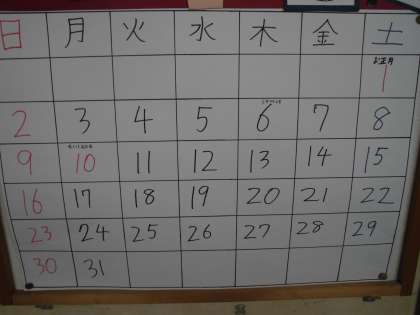 日 月 火 水 木 金 土
お正月
1
2 3 4 5 6 7 8
9 10 11 12 13 14 15
16 17 18 19 20 21 22
23 24 25 26 27 28 29
30 31